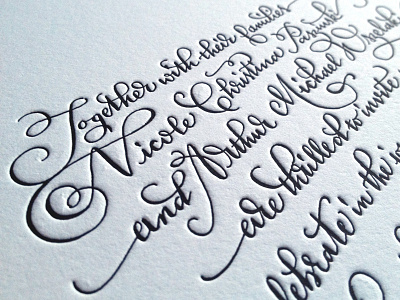 Together with their families
Nicole Christina
and Arthur Michael
are thrilled to invite
lebrate in the jo